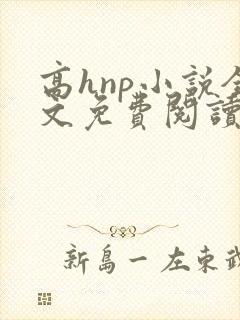 高hnp小説全
文免費閱讀
新島一左東武